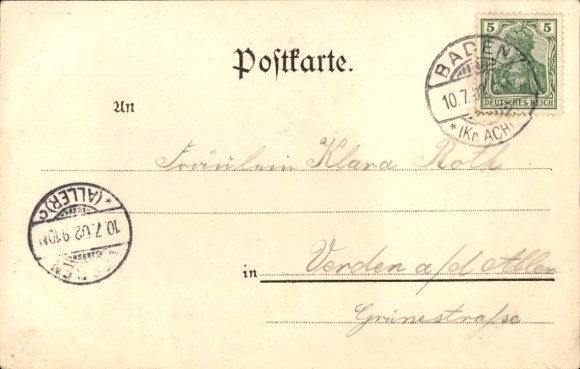 5 5
DEUTSCHES REICH
BADEN
10.7.
* (Kr. ACH)
Postkarte.
An
Fräulein Klara Roth
* (ALLER) c
10.7.02 9-10N
in Verden a/d Aller
Grünestrasse